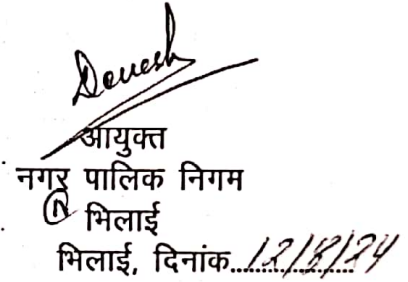 Devesh
आयुक्त
नगर पालिक निगम
भिलाई
भिलाई, दिनांक..12/8/24